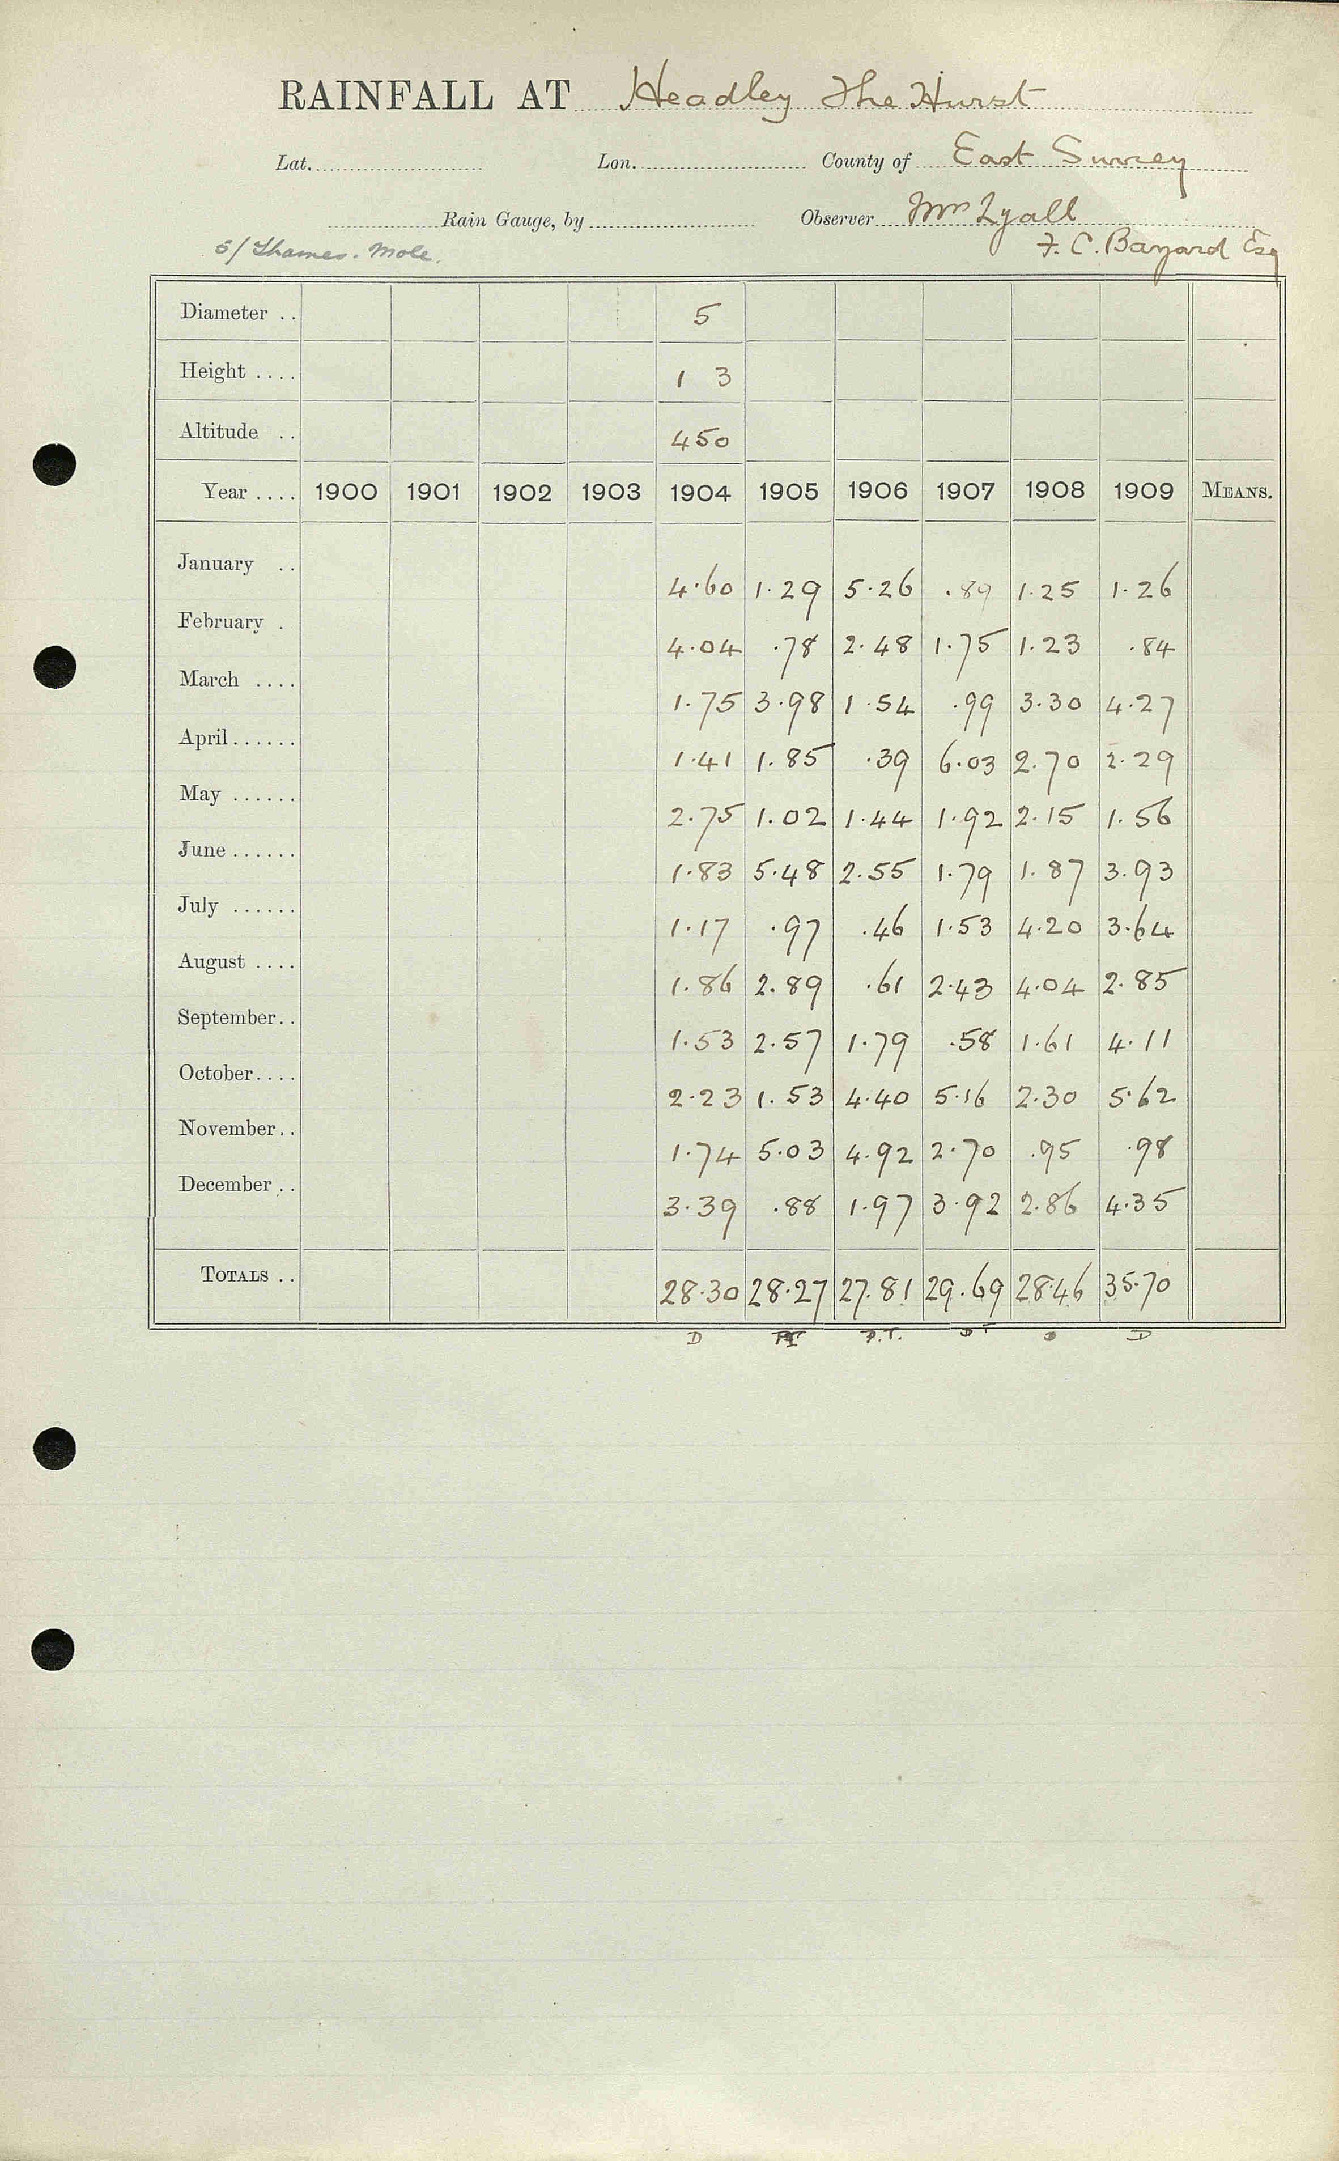 RAINFALL AT Headley The Hurst
Lat. Lon. County of East Surrey
Rain Gauge, by Observer Mrs Lyall
5/ Thames. Mole. F. C. Bayard Esq
Diameter .. 5
Height .... 1 3
Altitude .. 450
Year .... 1900 1901 1902 1903 1904 1905 1906 1907 1908 1909 MEANS.
January .. 4.60 1.29 5.26 .89 1.25 1.26
February . 4.04 .78 2.48 1.75 1.23 .84
March .... 1.75 3.98 1.54 .99 3.30 4.27
April...... 1.41 1.85 .39 6.03 2.70 2.29
May ...... 2.75 1.02 1.44 1.92 2.15 1.56
June...... 1.83 5.48 2.55 1.79 1.87 3.93
July ...... 1.17 .97 .46 1.53 4.20 3.64
August .... 1.86 2.89 .61 2.43 4.04 2.85
September.. 1.53 2.57 1.79 .58 1.61 4.11
October.... 2.23 1.53 4.40 5.16 2.30 5.62
November.. 1.74 5.03 4.92 2.70 .95 .98
December .. 3.39 .88 1.97 3.92 2.86 4.35
TOTALS .. 28.30 28.27 27.81 29.69 28.46 35.70
D P.T. D T D